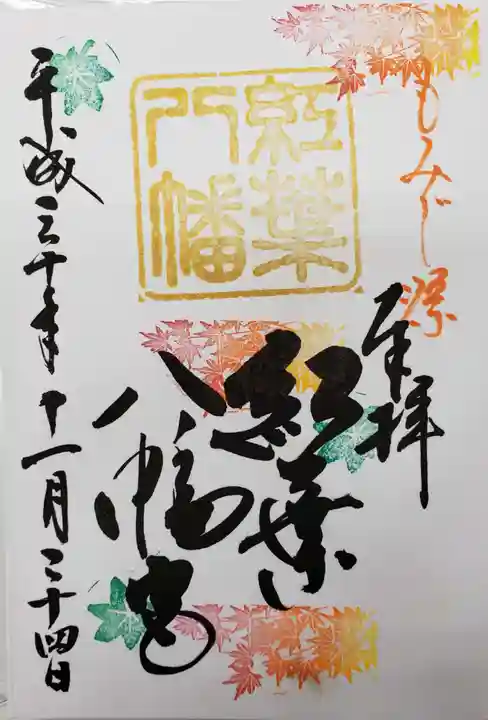 もみじ祭
奉拝
紅葉
八幡
紅葉
八幡宮
平成三十年十一月二十四日